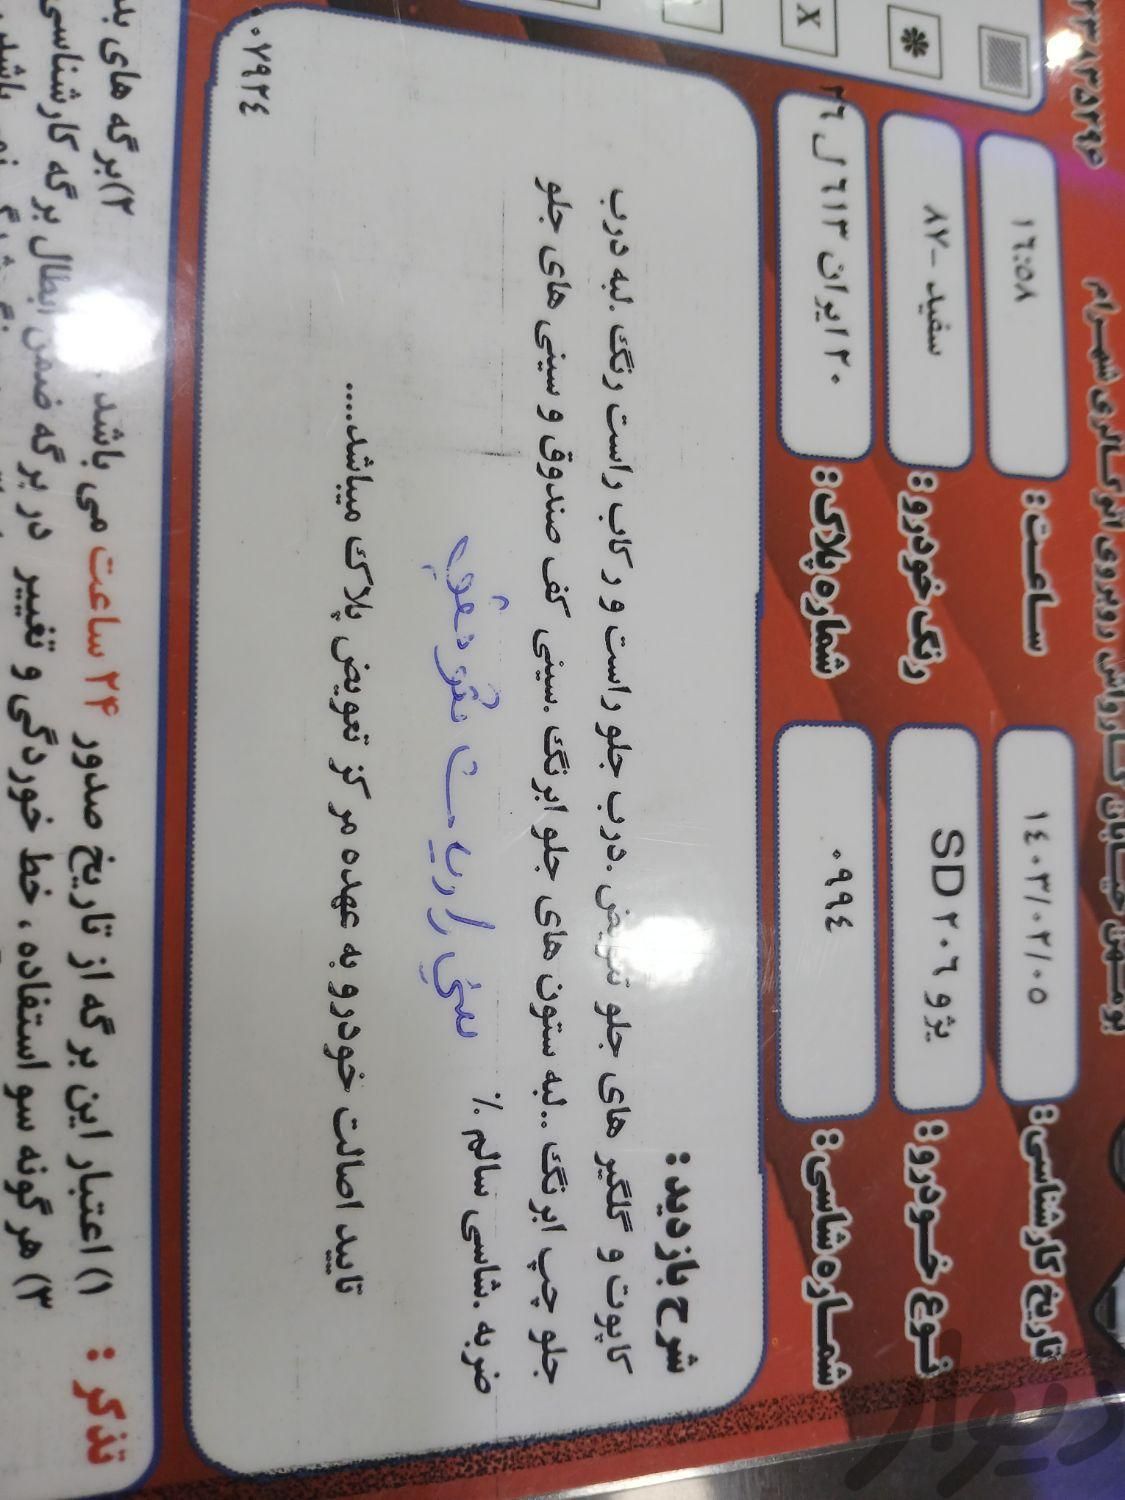 بومهن خیابان کارواش روبروی اتوگالری شهرام
تاریخ کارشناسی: ١٤٠٣/٠٢/٠٥ ساعت: ١٦:٥٨
نوع خودرو: پژو ٢٠٦ SD رنگ خودرو: سفید -٨٧
شماره شاسی: ٠٩٩٤ شماره پلاک: ٢٠ ایران ٦١٣ ل ٣٦
X
شرح بازدید:
کاپوت و گلگیر های جلو تعویض .درب جلو راست و رکاب راست رنگ .لبه درب
جلو چپ ابرنگ ..لبه ستون های جلو ابرنگ .سینی کف صندوق و سینی های جلو
ضربه .شاسی سالم .%
تایید اصالت خودرو به عهده مرکز تعویض پلاک میباشد....
٠٧٩٢٤
تذکر :
١) اعتبار این برگه از تاریخ صدور ٢۴ ساعت می باشد . ٢)برگه های
٣) هرگونه سو استفاده ، خط خوردگی و تغییر در برگه ضمن ابطال برگه کارشناسی
دیوار